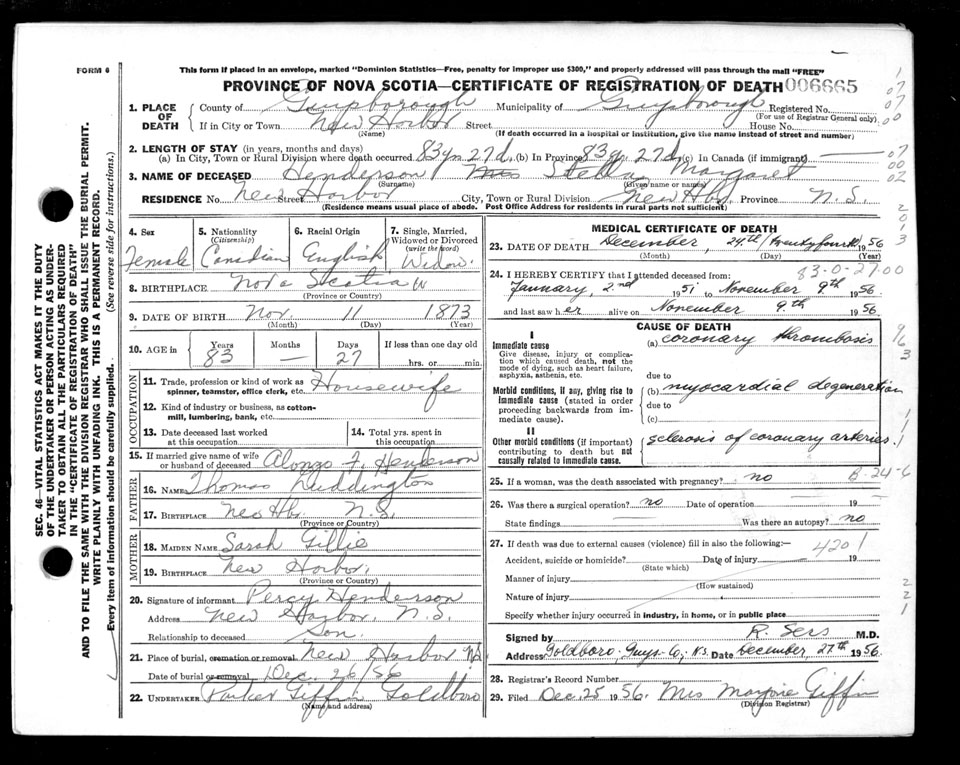 FORM 6
This form if placed in an envelope, marked "Dominion Statistics—Free, penalty for improper use $300," and properly addressed will pass through the mail "FREE"
PROVINCE OF NOVA SCOTIA—CERTIFICATE OF REGISTRATION OF DEATH 006665
1. PLACE OF DEATH County of Guysborough Municipality of Guysborough Registered No.
(For use of Registrar General only)
If in City or Town New Harbor Street House No.
(Name) (If death occurred in a hospital or institution, give the name instead of street and number)
2. LENGTH OF STAY (in years, months and days)
(a) In City, Town or Rural Division where death occurred 83 yr 27 d. (b) In Province 83 yr 27 d. (c) In Canada (if immigrant)
3. NAME OF DECEASED Henderson Stella Margaret
(Surname) (Given name or names)
RESIDENCE No. New Harbor Street City, Town or Rural Division New Hbr. Province N.S.
(Residence means usual place of abode. Post Office Address for residents in rural parts not sufficient)
4. Sex Female
5. Nationality (Citizenship) Canadian
6. Racial Origin English
7. Single, Married, Widowed or Divorced (write the word) Widow
8. BIRTHPLACE Nova Scotia
(Province or Country)
9. DATE OF BIRTH Nov. 11 1873
(Month) (Day) (Year)
10. AGE in Years 83 Months — Days 27 If less than one day old hrs. or min.
OCCUPATION
11. Trade, profession or kind of work as spinner, teamster, office clerk, etc. Housewife
12. Kind of industry or business, as cotton-mill, lumbering, bank, etc.
13. Date deceased last worked at this occupation
14. Total yrs. spent in this occupation
15. If married give name of wife or husband of deceased Alonzo F. Henderson
FATHER
16. NAME Thomas Luddington
17. BIRTHPLACE New Hbr. N.S.
(Province or Country)
MOTHER
18. MAIDEN NAME Sarah Gillie
19. BIRTHPLACE New Harbor.
(Province or Country)
20. Signature of informant Percy Henderson
Address New Harbor, N.S.
Relationship to deceased Son.
21. Place of burial, cremation or removal New Harbor NS
Date of burial or removal Dec. 26/56
22. UNDERTAKER Parker Giffin Goldboro
(Name and address)
MEDICAL CERTIFICATE OF DEATH
23. DATE OF DEATH December, 24th (twentyfourth) 1956
(Month) (Day) (Year)
83-0-27-00
24. I HEREBY CERTIFY that I attended deceased from:
January, 2nd 1951 to November 9th 1956
and last saw her alive on November 9th 1956
CAUSE OF DEATH
I
Immediate cause
Give disease, injury or complication which caused death, not the mode of dying, such as heart failure, asphyxia, asthenia, etc.
(a) coronary thrombosis
due to
Morbid conditions, if any, giving rise to immediate cause (stated in order proceeding backwards from immediate cause).
(b) myocardial degeneration
due to
(c)
II
Other morbid conditions (if important) contributing to death but not causally related to immediate cause.
sclerosis of coronary arteries.
25. If a woman, was the death associated with pregnancy? no
B-24-6
26. Was there a surgical operation? no Date of operation 19
State findings Was there an autopsy? no
27. If death was due to external causes (violence) fill in also the following:—
4201
Accident, suicide or homicide? Date of injury 19
(State which)
Manner of injury
(How sustained)
Nature of injury
Specify whether injury occurred in industry, in home, or in public place
Signed by R. Sers M.D.
Address Goldboro, Guys. Co, N.S. Date December, 27th 1956.
28. Registrar's Record Number
29. Filed Dec. 25 1956. Mrs Marjorie Giffin
(Division Registrar)
SEC. 46—VITAL STATISTICS ACT MAKES IT THE DUTY OF THE UNDERTAKER OR PERSON ACTING AS UNDERTAKER TO OBTAIN ALL THE PARTICULARS REQUIRED IN THE "CERTIFICATE OF REGISTRATION OF DEATH" AND TO FILE THE SAME WITH THE DIVISION REGISTRAR WHO SHALL ISSUE THE BURIAL PERMIT.
WRITE PLAINLY WITH UNFADING INK. THIS IS A PERMANENT RECORD.
Every item of information should be carefully supplied. (See reverse side for instructions.)